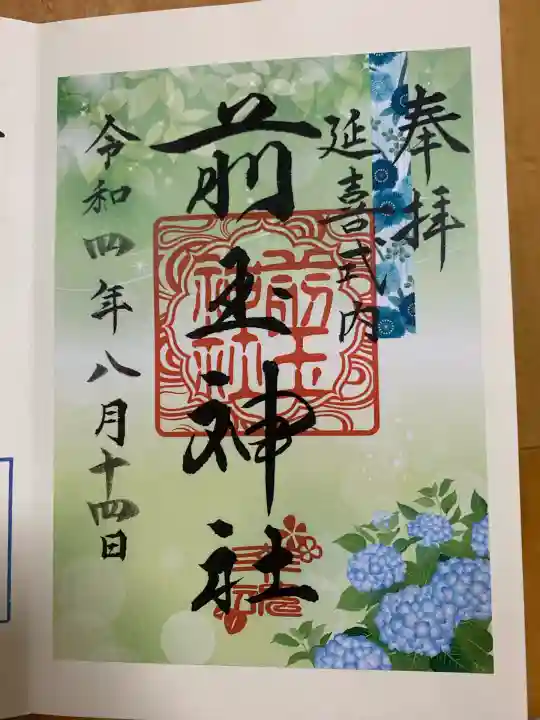 奉拝
延喜式内
前玉神社
前玉
神社
令和四年八月十四日